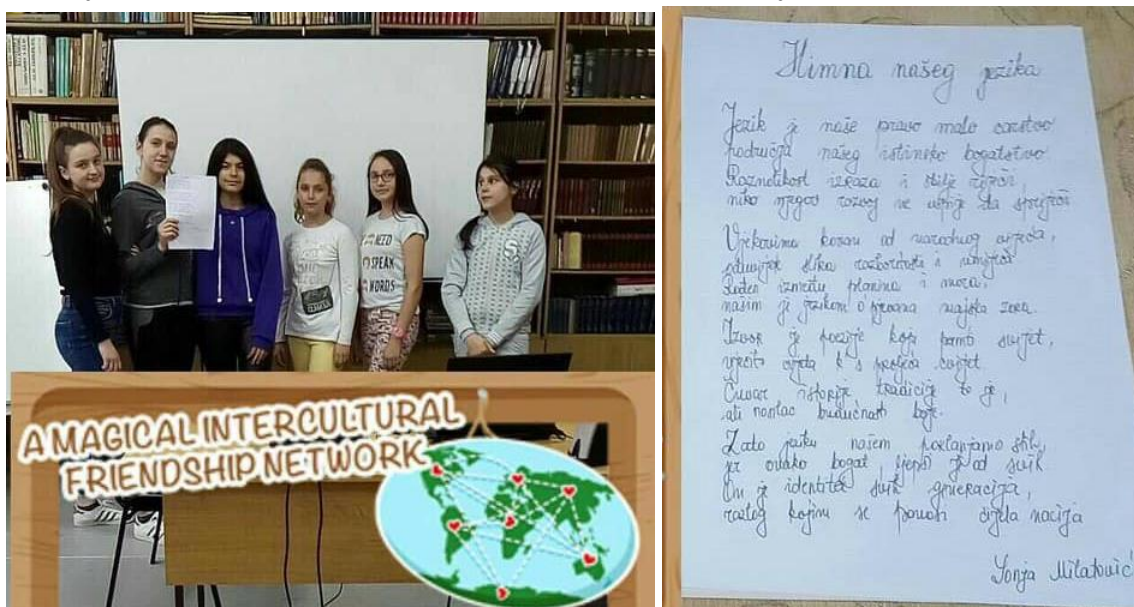 I NEED
SPEAK
WORDS
A MAGICAL INTERCULTURAL
FRIENDSHIP NETWORK
Himna našeg jezika
Jezik je naše pravo malo carstvo
područja našeg istinsko bogatstvo.
Raznolikost izraza i obilje riječi,
niko njegov razvoj ne uspije da spriječi
Vjekovima kovan od narodnog umijeća,
oduvijek slika
Rođen između planina i mora,
našim je jezikom opjevana majska zora.
Izvor je poezije koju pamti svijet,
vječito cvjeta k'o proljeća cvijet.
Čuvar istorije, tradicije to je,
ali nosilac budućnosti boje.
Zato jeziku našem poklanjamo stih,
jer ovako bogat ljepši je od svih
On je identitet svih generacija,
razlog kojim se ponosi cijela nacija
Sonja Milatović